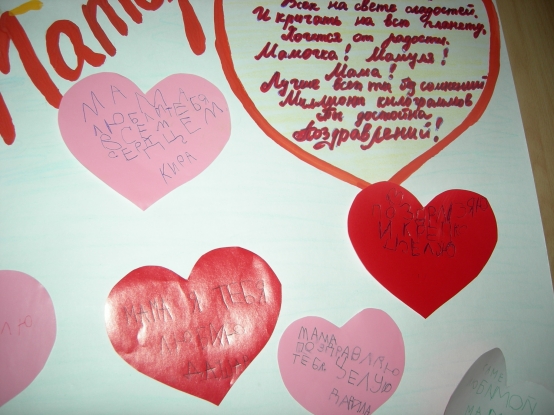 Мамоч
Всех на свете сладостей.
И кричать на всю планету,
Хочется от радости.
Мамочка! Мамуля!
Мама!
Лучше всех ты без сомнений
Миллиона килограммов
Ты достойна
Поздравлений!
МАМА
ЛЮБЛЮ ТЕБЯ
ВСЕМ
СЕРДЦЕМ
КИРА
И КРЕПКО
ЦЕЛУЮ
МАМА Я ТЕБЯ
ЛЮБЛЮ
МАМА
ПОЗДРАВЛЯЮ
ТЕБЯ ЦЕЛУЮ